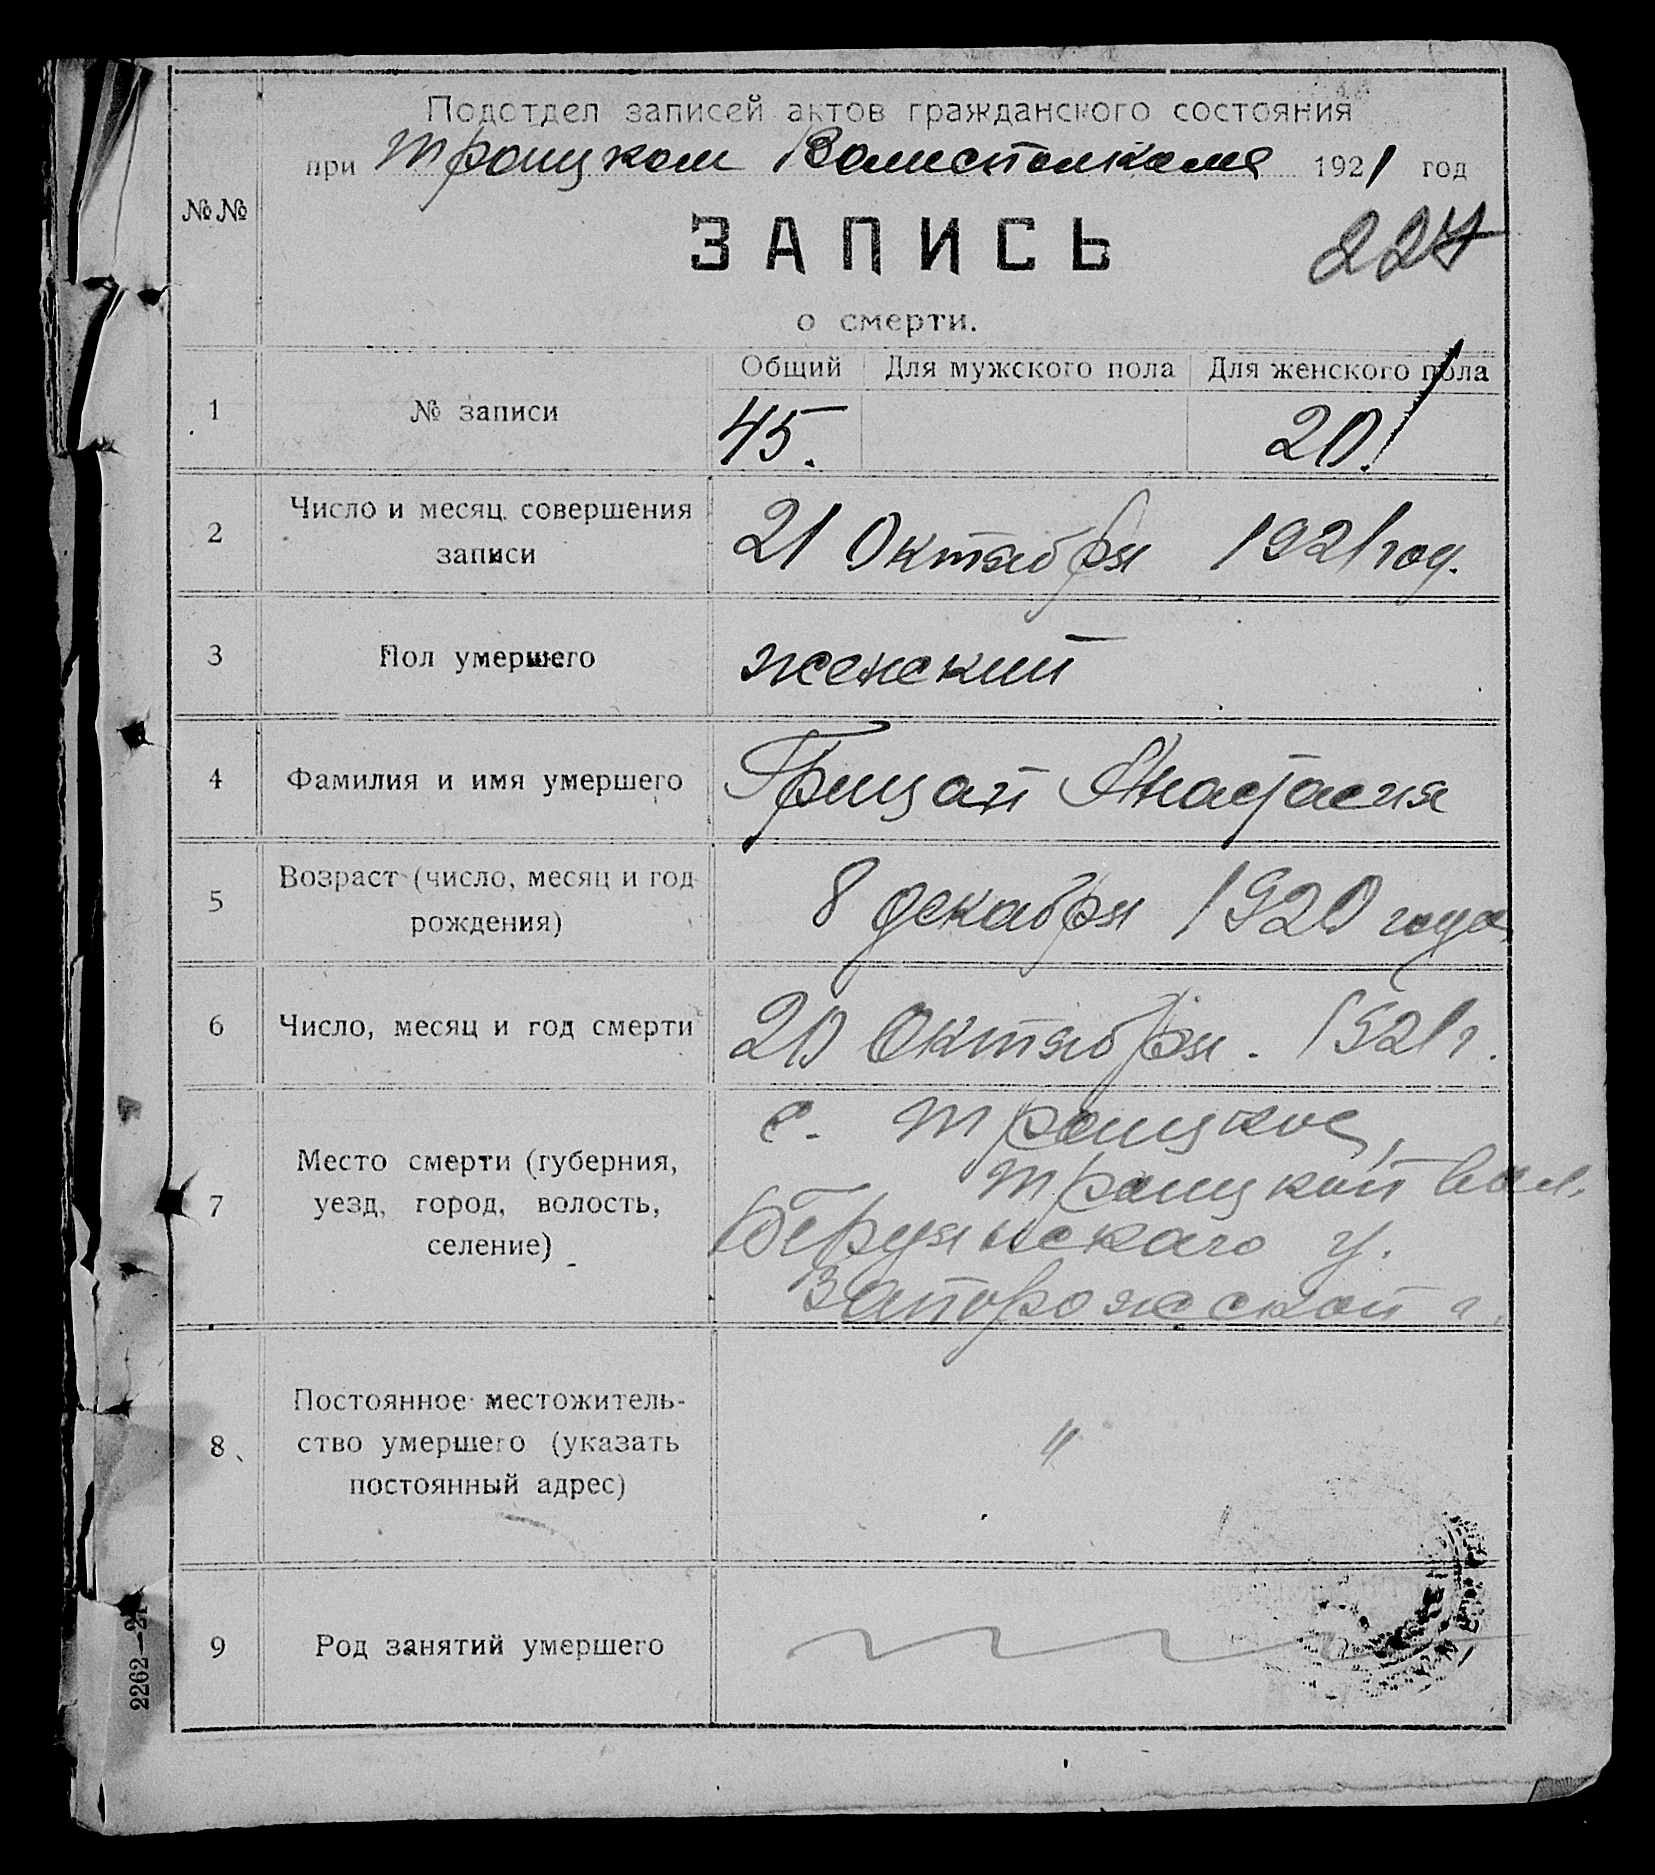 Подотдел записей актов гражданского состояния
при Троицком Волисполкоме 1921 год
№№
ЗАПИСЬ
227
о смерти.
Общий Для мужского пола Для женского пола
1 № записи 45. 20.
2 Число и месяц совершения
записи
21 Октября 1921 год.
3 Пол умершего женский
4 Фамилия и имя умершего Грицай Анастасия
5 Возраст (число, месяц и год
рождения)
8 декабря 1920 года
6 Число, месяц и год смерти 20 Октября. 1921 г.
7 Место смерти (губерния,
уезд, город, волость,
селение)
с. Троицкое,
Троицкой вол.
Бердянского у.
Запорожской г.
8 Постоянное местожитель-
ство умершего (указать
постоянный адрес)
"
9 Род занятий умершего
2262—21